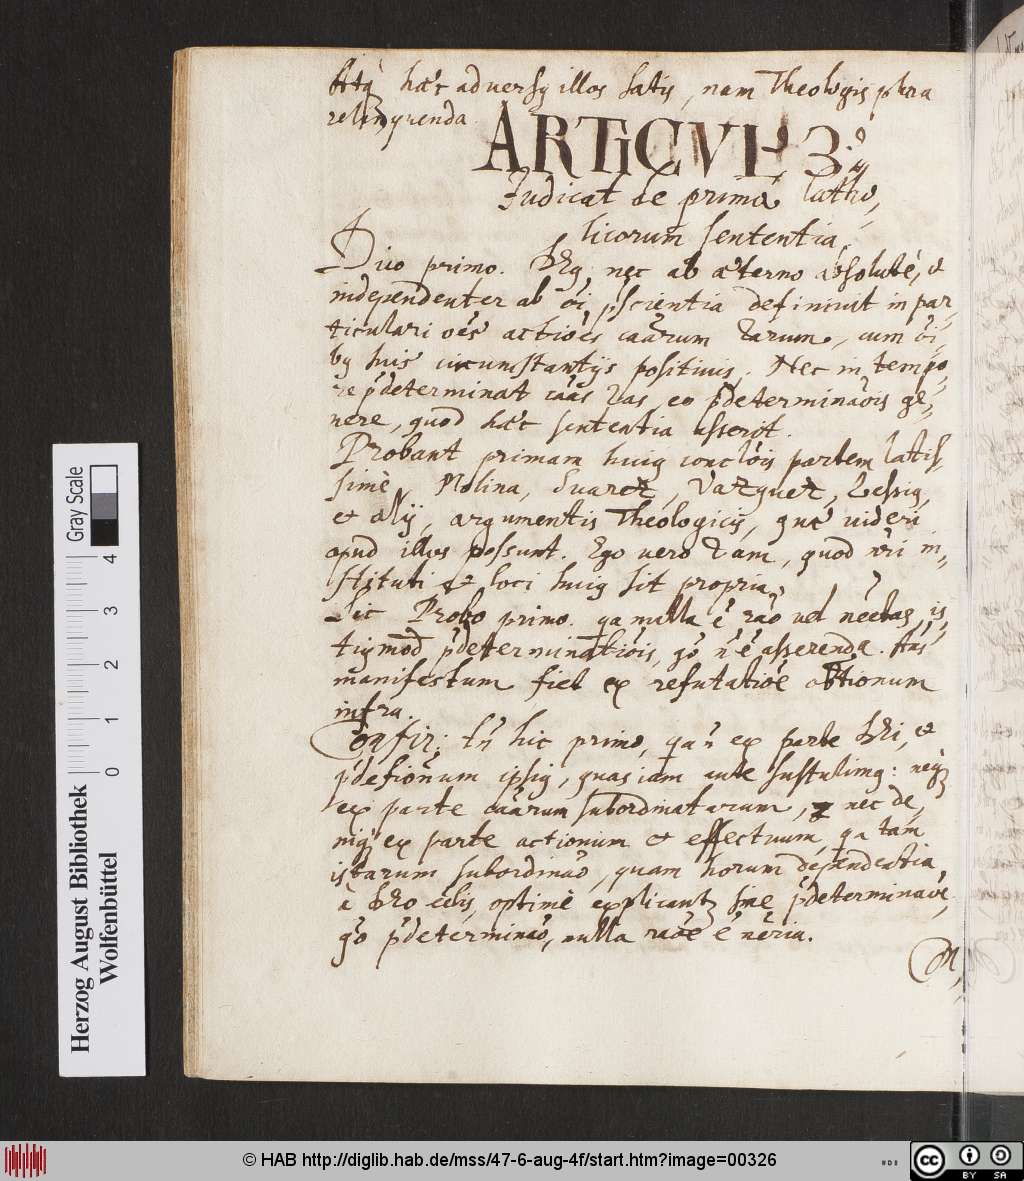 Atq hæc adversq illos satis, nam Theologis plura
relinquenda.
ARTICVL 3.us
Judicat de prima Catho,
licorum sententia.
Dico primo. Deq nec ab æterno absoluté, &
independenter ab oi pscientia definiuit in par-
ticulari oes actioes caarum 2arum, cum oi-
bq suis circumstantijs positiuis. Nec in tempo-
re pdeterminat caas 2as, eo pdeterminaois ge-
nere, quod hæc sententia asserit.
Probant primam huiq conclois partem latis-
simè, Molina, Suarez, Vazquez, Lessiq,
& alij, argumentis Theologicis, quæ uideri
apud illos possunt. Ego vero tam, quod nri in-
stituti & loci huiq sit propriu,
Sic Probo primo. qa nulla é rao vel necitas is-
tiqmodi pdeterminatiois, go n é asserenda. Ans
manifestum fiet ex refutatioe obtionum
infra.
Confir: tn hic primo, qa n ex parte Dei, &
pdefionum ipsiq, quas iam ante sustulimq: neq
ex parte caarum subordinatarum, nec de,
niq ex parte actionum & effectuum, qa tam
istarum subordinao, quam horum dependentia
à Deo optimè explicantr sine pdeterminaoe,
go pdeterminao, nulla raoe é neria.
Herzog August Bibliothek
Wolfenbüttel
0 1 2 3 4
Gray Scale
© HAB http://diglib.hab.de/mss/47-6-aug-4f/start.htm?image=00326
cc BY SA